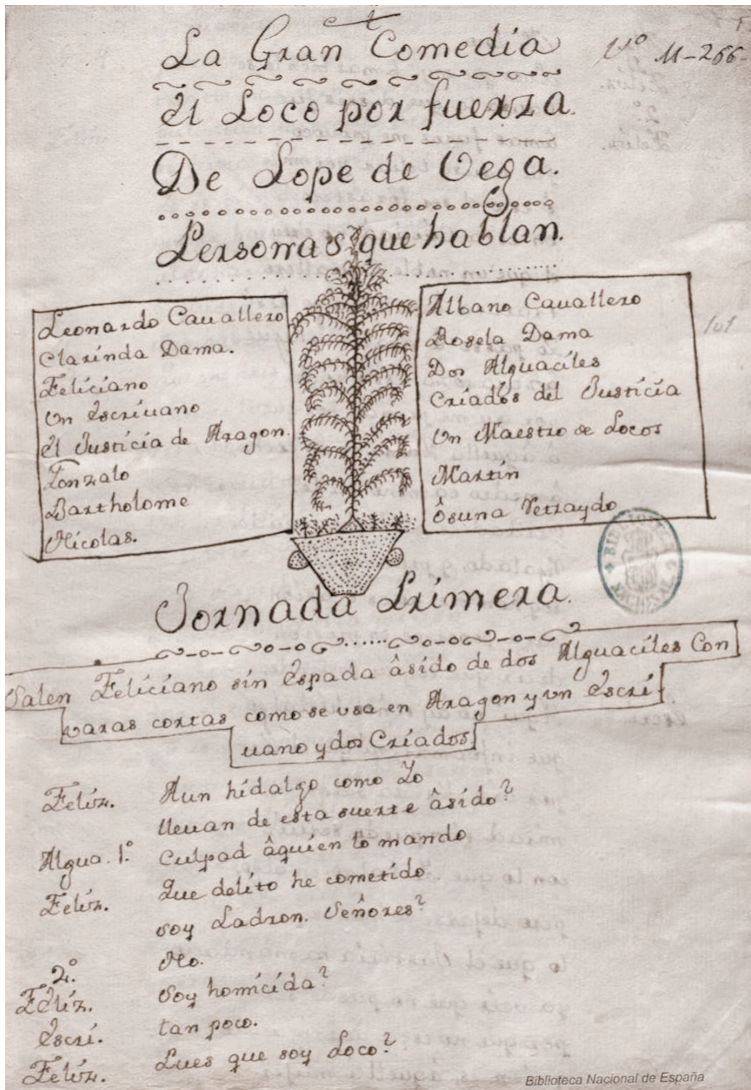 La Gran Comedia
Vº 11-266-
El Loco por fuerza.
De Lope de Vega.
Personas que hablan.
Leonardo Cauallero
Clarinda Dama.
Feliciano
Vn Escriuano
El Justicia de Aragon
Gonzalo
Bartholome
Nicolas.
Albano Cavallero
Rosela Dama
Dos Alguaciles
Criados del Justicia
Vn Maestro de Locos
Martin
Osuna Vejaydo
101
Jornada Primera.
Salen Feliciano sin Espada âsido de dos Alguaciles Con
varas cortas como se vsa en Aragon y vn Escri
uano y dos Criados
Feliz. Aun hidalgo como Yo
lleuan de esta suerte âsido?
Algua. 1º Culpad âquien lo mando
Feliz. Que delito he cometido
soy Ladron. Señores?
2º No.
Feliz. Soy homicida?
Escri. tan poco.
Feliz. Pues que soy Loco?
Biblioteca Nacional de España